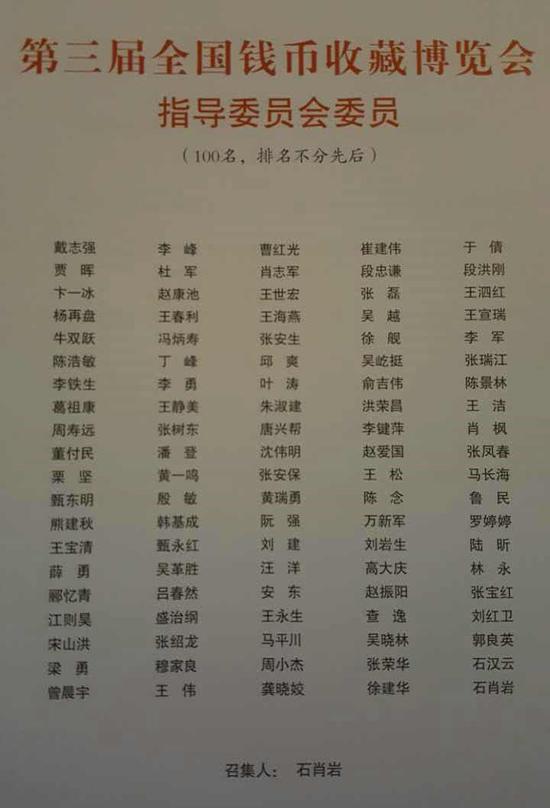 第三届全国钱币收藏博览会
指导委员会委员
（100名，排名不分先后）
戴志强 李 峰 曹红光 崔建伟 于 倩
贾 晖 杜 军 肖志军 段忠谦 段洪刚
卞一冰 赵康池 王世宏 张 磊 王泗红
杨再盘 王春利 王海燕 吴 越 王宣瑞
牛双跃 冯炳寿 张安生 徐 舰 李 军
陈浩敏 丁 峰 邱 爽 吴屹挺 张瑞江
李铁生 李 勇 叶 涛 俞吉伟 陈景林
葛祖康 王静美 朱淑建 洪荣昌 王 洁
周寿远 张树东 唐兴帮 李键萍 肖 枫
董付民 潘 登 沈伟明 赵爱国 张凤春
栗 坚 黄一鸣 张安保 王 松 马长海
甄东明 殷 敏 黄瑞勇 陈 念 鲁 民
熊建秋 韩基成 阮 强 万新军 罗婷婷
王宝清 甄永红 刘 建 刘岩生 陆 昕
薛 勇 吴革胜 汪 洋 高大庆 林 永
郦忆青 吕春然 安 东 赵振阳 张宝红
江则昊 盛治纲 王永生 查 逸 刘红卫
宋山洪 张绍龙 马平川 吴晓林 郭良英
梁 勇 穆家良 周小杰 张荣华 石汉云
曾晨宇 王 伟 龚晓姣 徐建华 石肖岩
召集人： 石肖岩